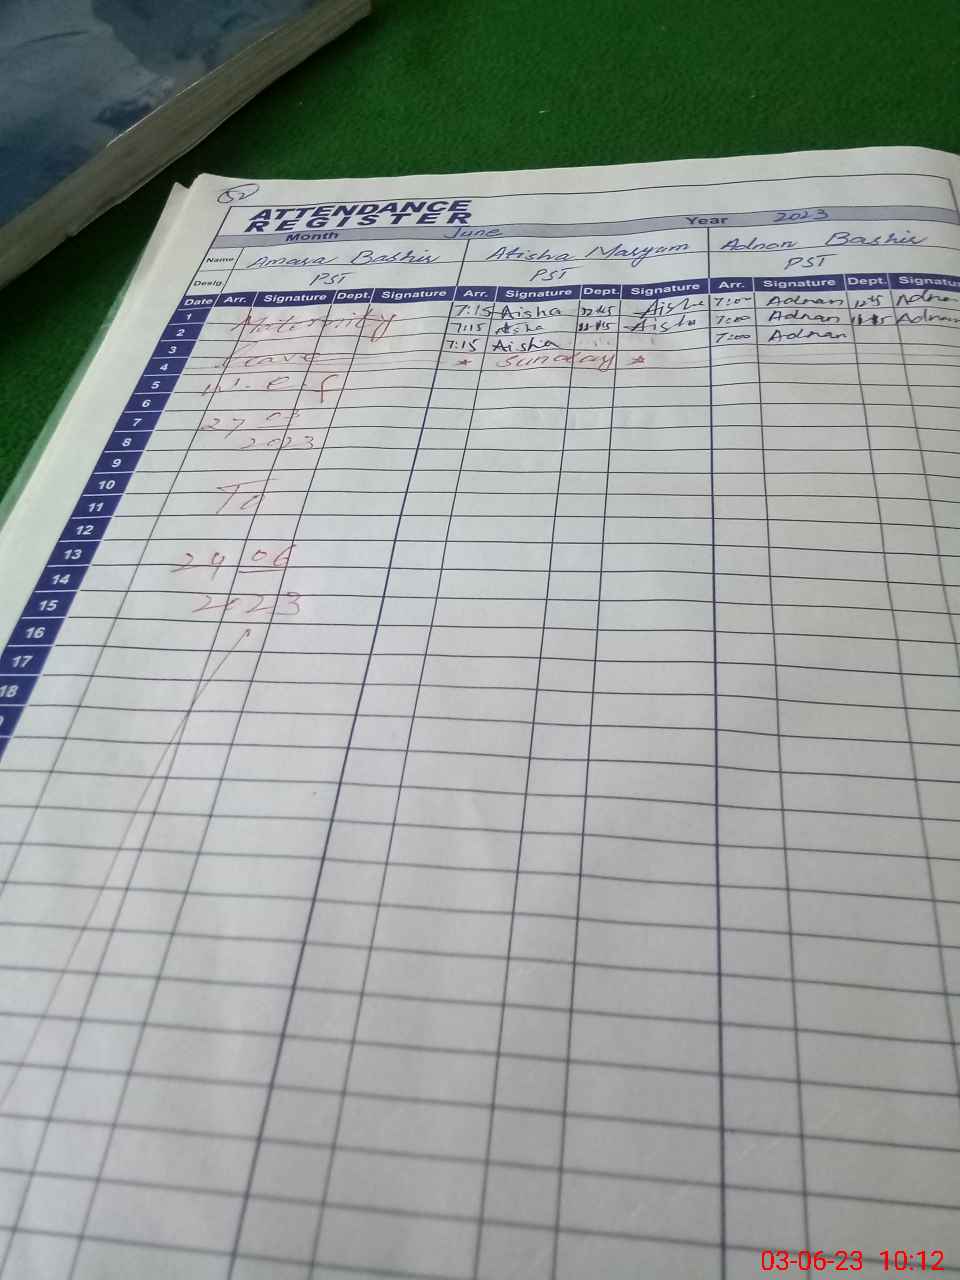 52
ATTENDANCE
REGISTER
Month June Year 2023
Name Amara Bashir Atisha Maryam Adnan Bashir
Desig. PST PST PST
Date Arr. Signature Dept. Signature Arr. Signature Dept. Signature Arr. Signature Dept. Signatu
1 Maternity 7:15 Aisha Aisha 7:00 Adnan Adnan
2 7:15 Aisha 11:45 Aisha 7:00 Adnan 11:45 Adnan
3 Leave 7:15 Aisha 7:00 Adnan
4 * Sunday *
5 w.e.f
6
7 27 03
8 2023
9
10 To
11
12
13 24 06
14
15 2023
16
17
18
03-06-23 10:12